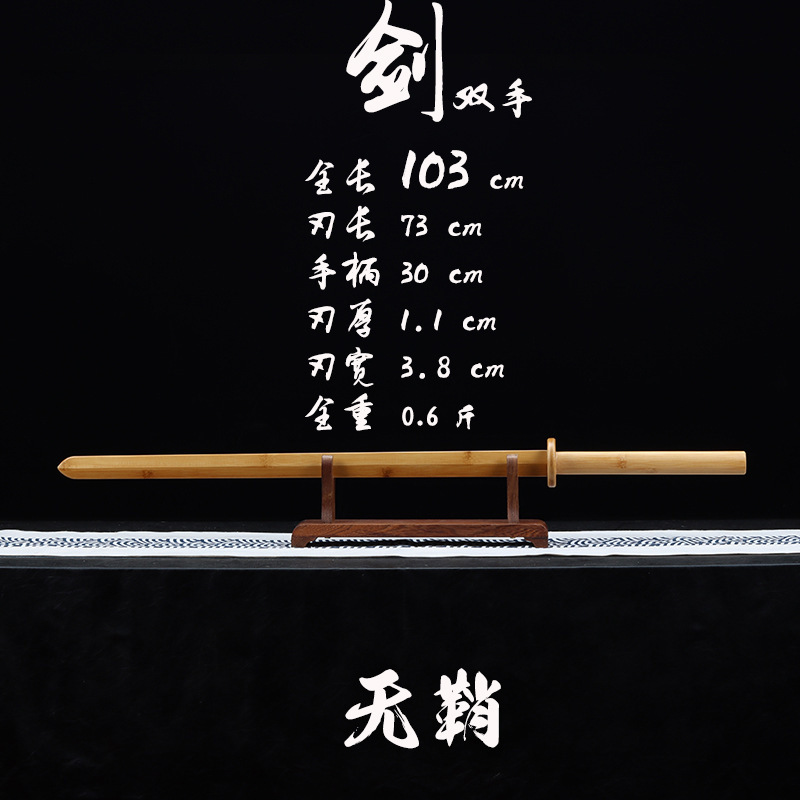 剑双手
全长 103 cm
刃长 73 cm
手柄 30 cm
刃厚 1.1 cm
刃宽 3.8 cm
全重 0.6 斤
无鞘